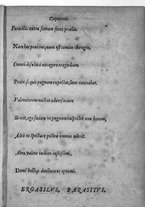 Captivei.
Foris illic extra scenam fient prælia.
Nam hoc penè iniquum est comico choragio,
Conari desubitò nos agere tragœdiam.
Proin si quis pugnam expectat, litis contrahat.
Valentiorem nactus adversarium
Si erit, ego faciam ut pugnam inspectet non bonam,
Adeò ut spectare postea omneis oderit.
Abeo, valete iudices iustissimi,
Domi bellique duellatores optumi.
ERGASILVS, PARASITVS.